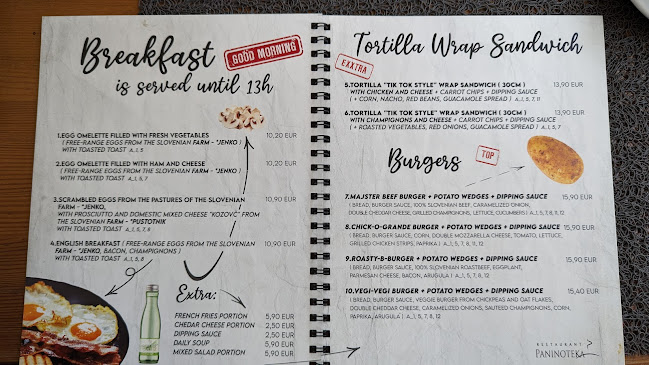 Breakfast
GOOD MORNING
is served until 13h
1.EGG OMELETTE FILLED WITH FRESH VEGETABLES 10,20 EUR
( FREE-RANGE EGGS FROM THE SLOVENIAN FARM - "JENKO )
WITH TOASTED TOAST A_I, 5
2.EGG OMELETTE FILLED WITH HAM AND CHEESE 10,20 EUR
( FREE-RANGE EGGS FROM THE SLOVENIAN FARM - "JENKO )
WITH TOASTED TOAST A_I, 5, 7
3.SCRAMBLED EGGS FROM THE PASTURES OF THE SLOVENIAN 10,90 EUR
FARM - "JENKO,
WITH PROSCIUTTO AND DOMESTIC MIXED CHEESE "KOZOVČ" FROM
THE SLOVENIAN FARM - "PUSTOTNIK
WITH TOASTED TOAST A_I, 5, 7, 8
4.ENGLISH BREAKFAST ( FREE-RANGE EGGS FROM THE SLOVENIAN 10,90 EUR
FARM - "JENKO, BACON, CHAMPIGNONS )
WITH TOASTED TOAST A_I, 5, 8
Extra:
FRENCH FRIES PORTION 5,90 EUR
CHEDAR CHEESE PORTION 2,50 EUR
DIPPING SAUCE 2,50 EUR
DAILY SOUP 5,90 EUR
MIXED SALAD PORTION 5,90 EUR
Tortilla Wrap Sandwich
EXXTRA
5.TORTILLA "TIK TOK STYLE" WRAP SANDWICH ( 30CM ) 13,90 EUR
WITH CHICKEN AND CHEESE + CARROT CHIPS + DIPPING SAUCE
( + CORN, NACHO, RED BEANS, GUACAMOLE SPREAD ) A_I, 5, 7, 11
6.TORTILLA "TIK TOK STYLE" WRAP SANDWICH ( 30CM ) 13,90 EUR
WITH CHAMPIGNONS AND CHEESE + CARROT CHIPS + DIPPING SAUCE
( + ROASTED VEGETABLES, RED ONIONS, GUACAMOLE SPREAD ) A_I, 5, 7
Burgers
TOP
7.MAJSTER BEEF BURGER + POTATO WEDGES + DIPPING SAUCE 15,90 EUR
( BREAD, BURGER SAUCE, 100% SLOVENIAN BEEF, CARAMELIZED ONION,
DOUBLE CHEDDAR CHEESE, GRILLED CHAMPIGNONS, LETTUCE, CUCUMBERS ) A_I, 5, 7, 8, 11, 12
8.CHICK-O-GRANDE BURGER + POTATO WEDGES + DIPPING SAUCE 15,90 EUR
( BREAD, BURGER SAUCE, CORN, DOUBLE MOZZARELLA CHEESE, TOMATO, LETTUCE,
GRILLED CHICKEN STRIPS, PAPRIKA ) A_I, 5, 7, 8, 11, 12
9.ROASTY-B-BURGER + POTATO WEDGES + DIPPING SAUCE 15,90 EUR
( BREAD, BURGER SAUCE, 100% SLOVENIAN ROASTBEEF, EGGPLANT,
PARMESAN CHEESE, BACON, ARUGULA ) A_I, 5, 7, 8, 11, 12
10.VEGI-VEGI BURGER + POTATO WEDGES + DIPPING SAUCE 15,40 EUR
( BREAD, BURGER SAUCE, VEGGIE BURGER FROM CHICKPEAS AND OAT FLAKES,
DOUBLE CHEDDAR CHEESE, CARAMELIZED ONIONS, SAUTEED CHAMPIGNONS, CORN,
PAPRIKA, ARUGULA ) A_I, 5, 7, 8, 12
RESTAURANT
PANINOTEKA